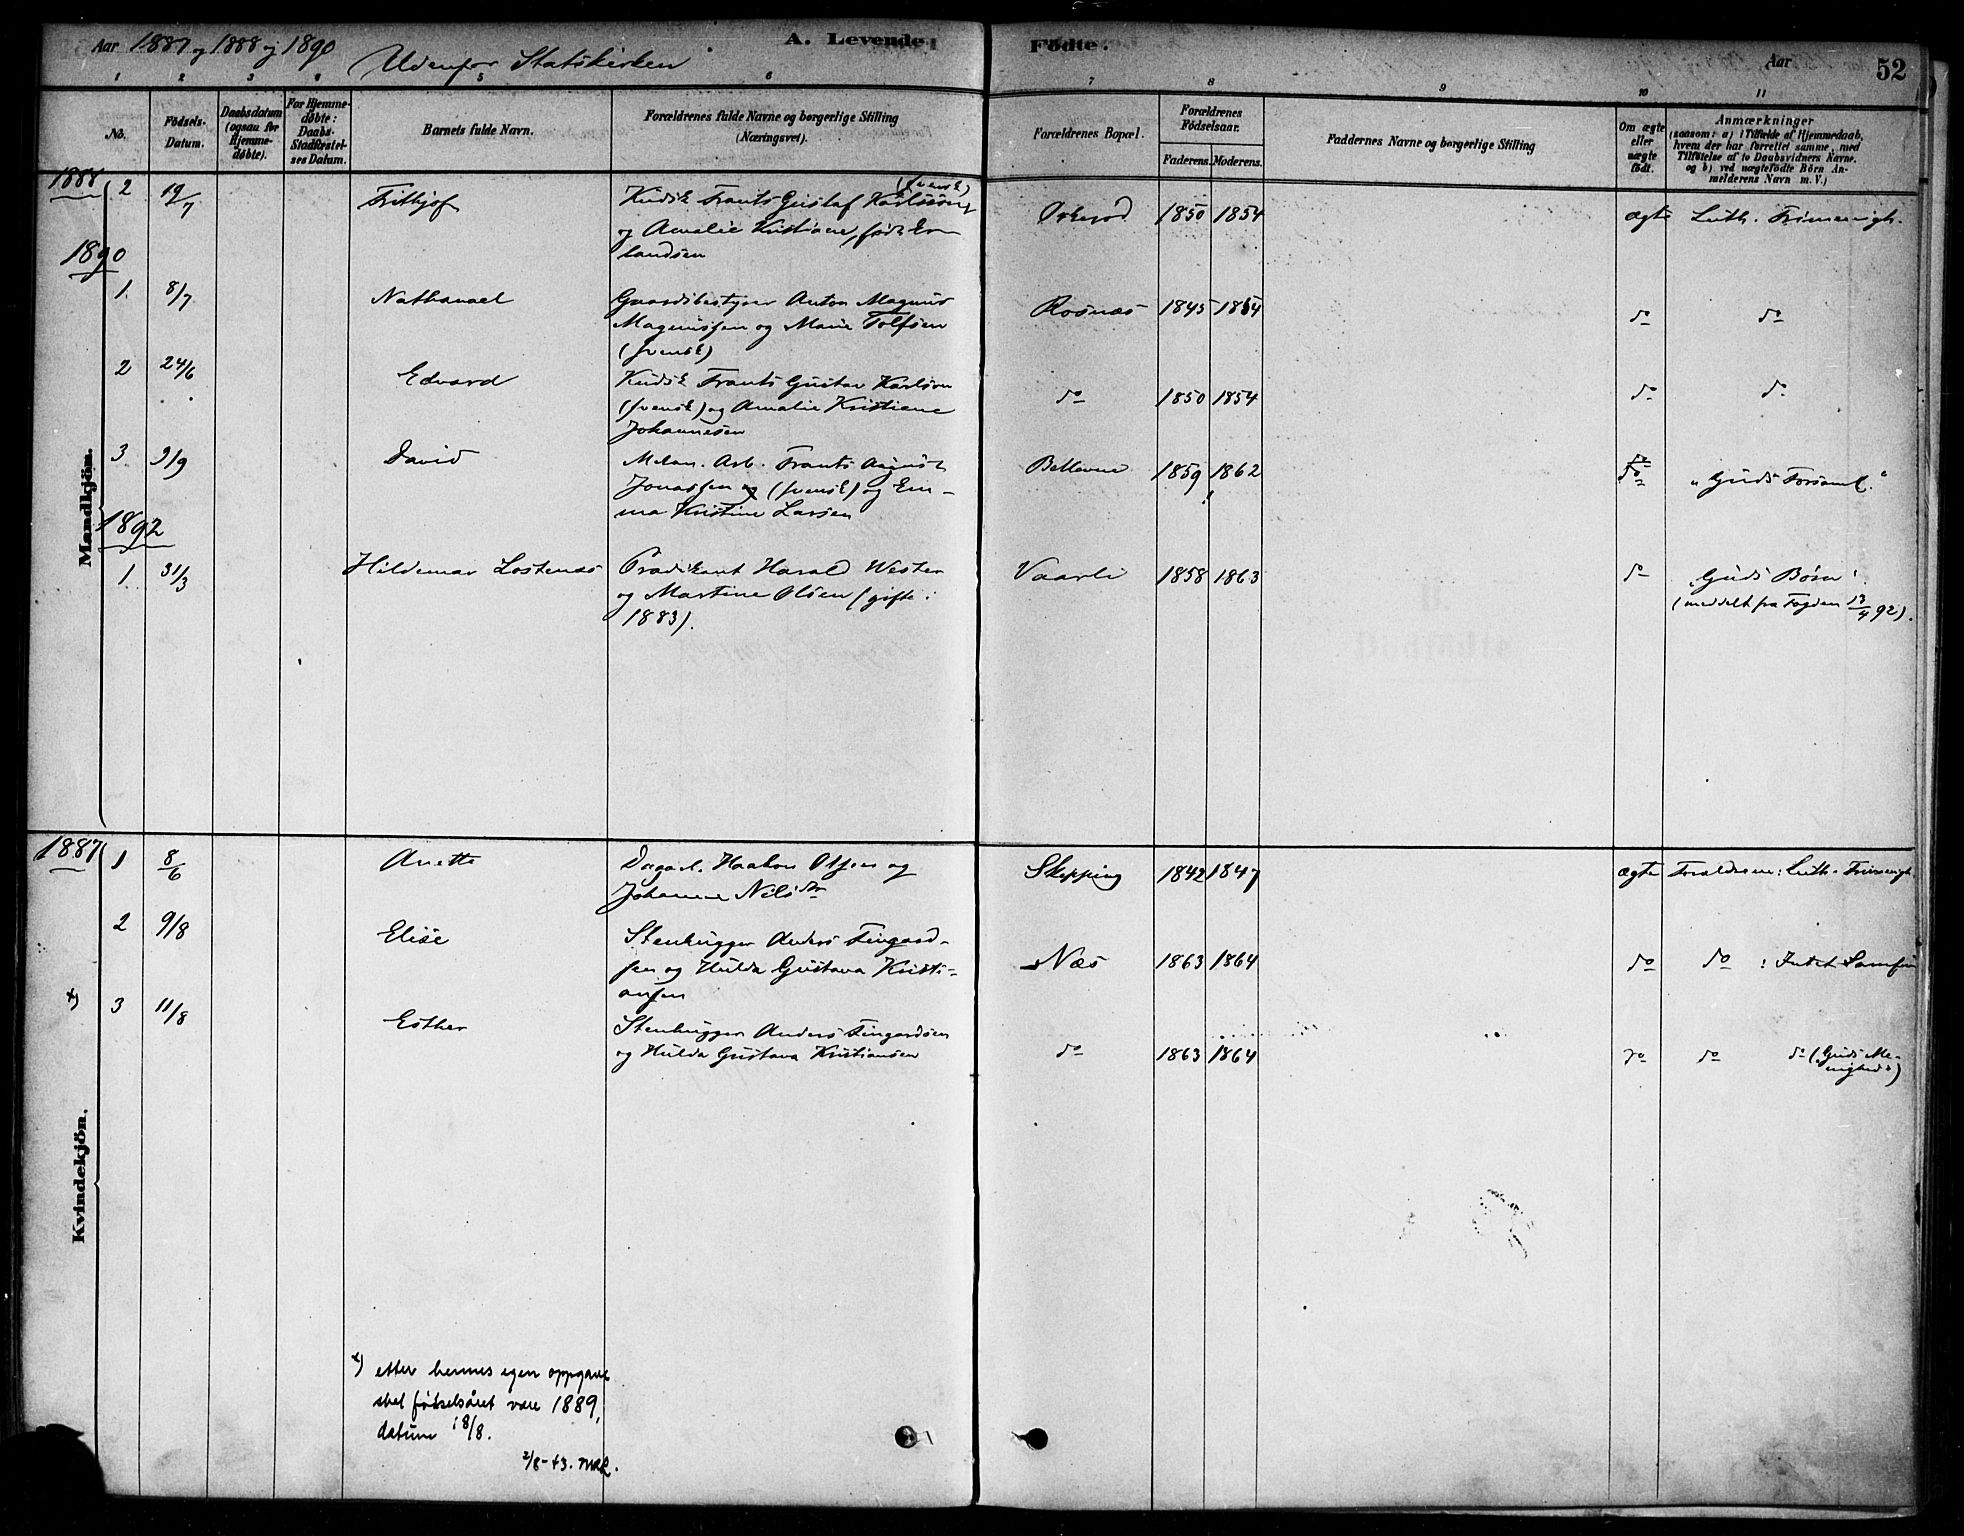 Aar 1887 og 1888 og 1890 A. Levende Fødte. Aar 52
Udenfor Statskirken
1 2 3 4 5 6 7 8 9 10 11
No.
Fødsels-Datum.
Daabsdatum (ogsau før Hjemme-døbte).
For Hjemme-døbte: Daabs-Stadfæstel-ses Datum.
Barnets fulde Navn.
Forældrenes fulde Navne og borgerlige Stilling (Næringsvei).
Forældrenes Bopæl.
Forældrenes Fødselsaar.
Faderens. Moderens.
Faddernes Navne og borgerlige Stilling
Om ægte eller uægte født.
Anmærkninger
(saasom: a) i Tilfælde af Hjemmedaab,
hvem der har forrettet samme, med
Tilføielse af to Daabsvidners Navne.
og b) ved uægtefødte Børn An-
melderens Navn m. V.)
Mandkjön.
1888
2 19/7 Fritjof Kudsk Frants Gustaf Karlsson (svensk) 1850 1854 ægte Luth. Frimenigh.
og Amalie Kristiane, født Er-
landsen
1890
1. 8/7 Nathanael Gaardsbestyrer Anton Magnus Rosnæs 1845 1854 do do
Magnussen og Marie Tolfsen
(svensk)
2 24/6 Edvard Kudsk Frants Gustav Karlsson do 1850 1854 do do
(svensk) og Amalie Kristiane
Johannesen
3 9/9 David Frants August Bellevue 1859 1862 do "Guds Forsaml."
Jonassen (svensk) og Em-
ma Kristine Larsen
1892
1. 31/3 Hildemar Lostenæs Prædikant Harald Wester Vaarli 1858 1863 do "Guds Børn"
og Martine Olsen (gifte i (meddelt fra Fogden 13/4 92).
1883).
Kvindekjön.
1887
1 8/6 Anette Dagarb. Haakon Olsen og Skepping 1842 1847 ægte Forældrene: Luth. Frimenigh.
Johanne Nilsdtr
2 9/8 Elise Stenhugger Anders Fingard- Næs 1863 1864 do do : Intet Samfu
sen og Hulda Gustava Kristi-
ansen
x) 3 11/8 Esther Stenhugger Anders Fingardsen do 1863 1864 do do do (Guds Me-
og Hulda Gustava Kristiansen nighed)
x) etter hennes egen oppgave
skal fødselsåret være 1889,
datum 18/8.
2/8-43.